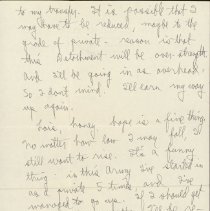 to my transfer. It is possible that I
may have to be reduced, maybe to the
grade of private - reason is that
this Detachment will be over-strength
and I'll be going in as overhead.
So I don't mind. I'll earn my way
up again.
Lois, honey hope is a fine thing
no matter how low I may fall, I
still want to rise. It's a funny
thing - is this Army. I've started in
as a private 5 times and I've
managed to go up. If I should get